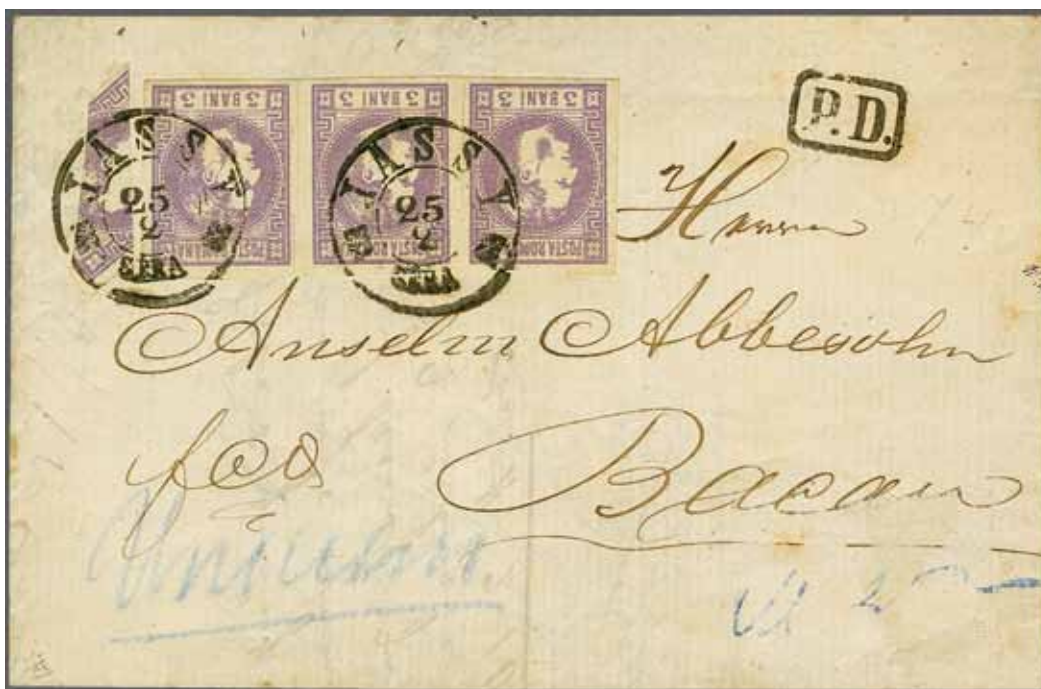 3 BANI 3
3 BANI 3
3 BANI 3
POSTA ROMANA
POSTA ROM
POSTA ROM
JASSY
25
2
SERA
JASSY
25
2
SERA
P.D.
Herrn
Anselm Abbesohn
fco
Bacau